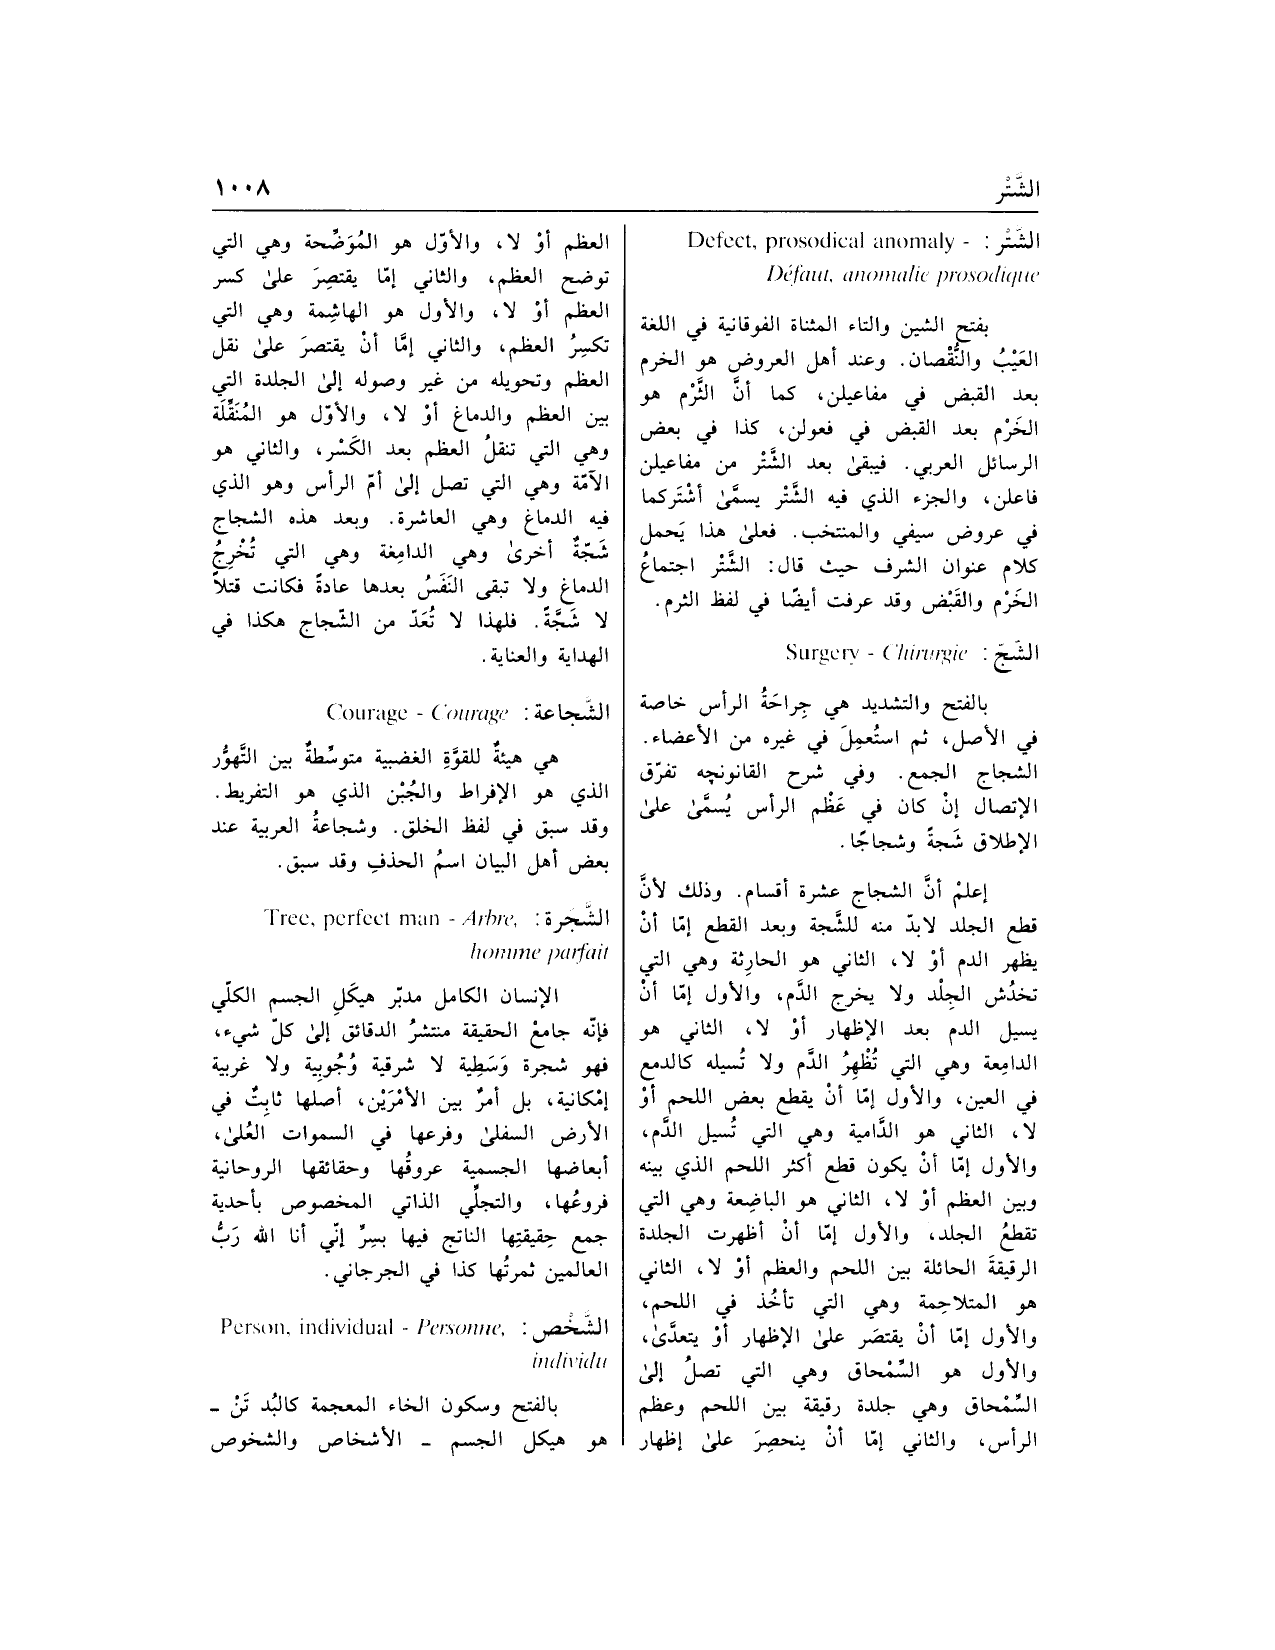 الشَّتْر
١٠٠٨
الشَتْر : Defect, prosodical anomaly -
Défaut, anomalie prosodique
بفتح الشين والتاء المثناة الفوقانية في اللغة
العَيْبُ والنُّقْصان. وعند أهل العروض هو الخرم
بعد القبض في مفاعيلن، كما أنَّ الثَّرْم هو
الخَرْم بعد القبض في فعولن، كذا في بعض
الرسائل العربي. فيبقىٰ بعد الشَّتْر من مفاعيلن
فاعلن، والجزء الذي فيه الشَّتْر يسمَّىٰ أشْتَركما
في عروض سيفي والمنتخب. فعلىٰ هذا يَحمل
كلام عنوان الشرف حيث قال: الشَّتْر اجتماعُ
الخَرْم والقَبْض وقد عرفت أيضًا في لفظ الثرم.
الشّجّ : Surgery - Chirurgie
بالفتح والتشديد هي جِراحَةُ الرأس خاصة
في الأصل، ثم استُعمِلَ في غيره من الأعضاء.
الشجاج الجمع. وفي شرح القانونچه تفرّق
الإتصال إنْ كان في عَظْم الرأس يُسمَّىٰ علىٰ
الإطلاق شَجةً وشجاجًا.
إعلمْ أنَّ الشجاج عشرة أقسام. وذلك لأنَّ
قطع الجلد لابدّ منه للشَّجة وبعد القطع إمّا أنْ
يظهر الدم أوْ لا، الثاني هو الحارِثة وهي التي
تخدُش الجِلْد ولا يخرج الدَّم، والأول إمّا أنْ
يسيل الدم بعد الإظهار أوْ لا، الثاني هو
الدامِعة وهي التي تُظْهِرُ الدَّم ولا تُسيله كالدمع
في العين، والأول إمّا أنْ يقطع بعض اللحم أوْ
لا، الثاني هو الدَّامية وهي التي تُسيل الدَّم،
والأول إمّا أنْ يكون قطع أكثر اللحم الذي بينه
وبين العظم أوْ لا، الثاني هو الباضِعة وهي التي
تقطعُ الجلد، والأول إمّا أنْ أظهرت الجلدة
الرقيقةَ الحائلة بين اللحم والعظم أوْ لا، الثاني
هو المتلاحِمة وهي التي تأخُذ في اللحم،
والأول إمّا أنْ يقتصَر علىٰ الإظهار أوْ يتعدَّىٰ،
والأول هو السِّمْحاق وهي التي تصلُ إلىٰ
السِّمْحاق وهي جلدة رقيقة بين اللحم وعظم
الرأس، والثاني إمّا أنْ ينحصِرَ علىٰ إظهار
العظم أوْ لا، والأوّل هو المُوَضِّحة وهي التي
توضح العظم، والثاني إمّا يقتصِرَ علىٰ كسر
العظم أوْ لا، والأول هو الهاشِمة وهي التي
تكسِرُ العظم، والثاني إمَّا أنْ يقتصرَ علىٰ نقل
العظم وتحويله من غير وصوله إلىٰ الجلدة التي
بين العظم والدماغ أوْ لا، والأوّل هو المُنَقِّلَة
وهي التي تنقلُ العظم بعد الكَسْر، والثاني هو
الآمّة وهي التي تصل إلىٰ أمّ الرأس وهو الذي
فيه الدماغ وهي العاشرة. وبعد هذه الشجاج
شَجّةٌ أخرىٰ وهي الدامِغة وهي التي تُخْرِجُ
الدماغ ولا تبقى النَفَسُ بعدها عادةً فكانت قتلاً
لا شَجَّةً. فلهذا لا تُعَدّ من الشّجاج هكذا في
الهداية والعناية.
الشَّجاعة: Courage - Courage
هي هيئةٌ للقوَّةِ الغضبية متوسِّطةٌ بين التَّهوُّر
الذي هو الإفراط والجُبْن الذي هو التفريط.
وقد سبق في لفظ الخلق. وشجاعةُ العربية عند
بعض أهل البيان اسمُ الحذفِ وقد سبق.
الشَّجَرة: Tree, perfect man - Arbre,
homme parfait
الإنسان الكامل مدبّر هيكَلِ الجسم الكلّي
فإنّه جامعْ الحقيقة منتشرُ الدقائق إلىٰ كلّ شيء،
فهو شجرة وَسَطِية لا شرقية وُجُوبِية ولا غربية
إمْكانية، بل أمرٌ بين الأمْرَيْن، أصلها ثابِتٌ في
الأرض السفلىٰ وفرعها في السموات العُلىٰ،
أبعاضها الجسمية عروقُها وحقائقها الروحانية
فروعُها، والتجلِّي الذاتي المخصوص بأحدية
جمع حِقيقتِها الناتج فيها بسِرِّ إنّي أنا الله رَبُّ
العالمين ثمرتُها كذا في الجرجاني.
الشَّخْص : Person, individual - Personne,
individu
بالفتح وسكون الخاء المعجمة كالبُد تَنْ ـ
هو هيكل الجسم ـ الأشخاص والشخوص